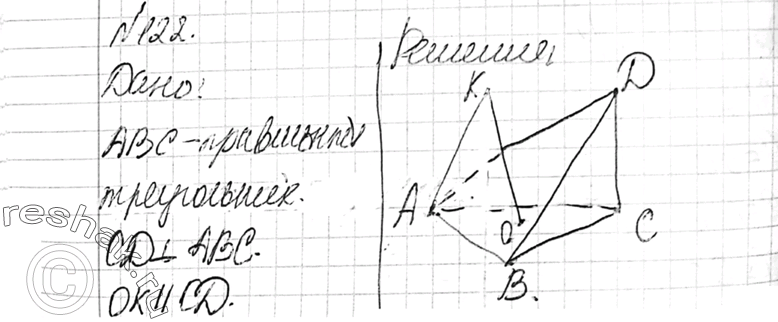 №122.
Дано:
ABC - правильный
треугольник.
CD⊥ABC.
OK || CD.
Решения
K
D
A
O
C
B.
reshak.ru